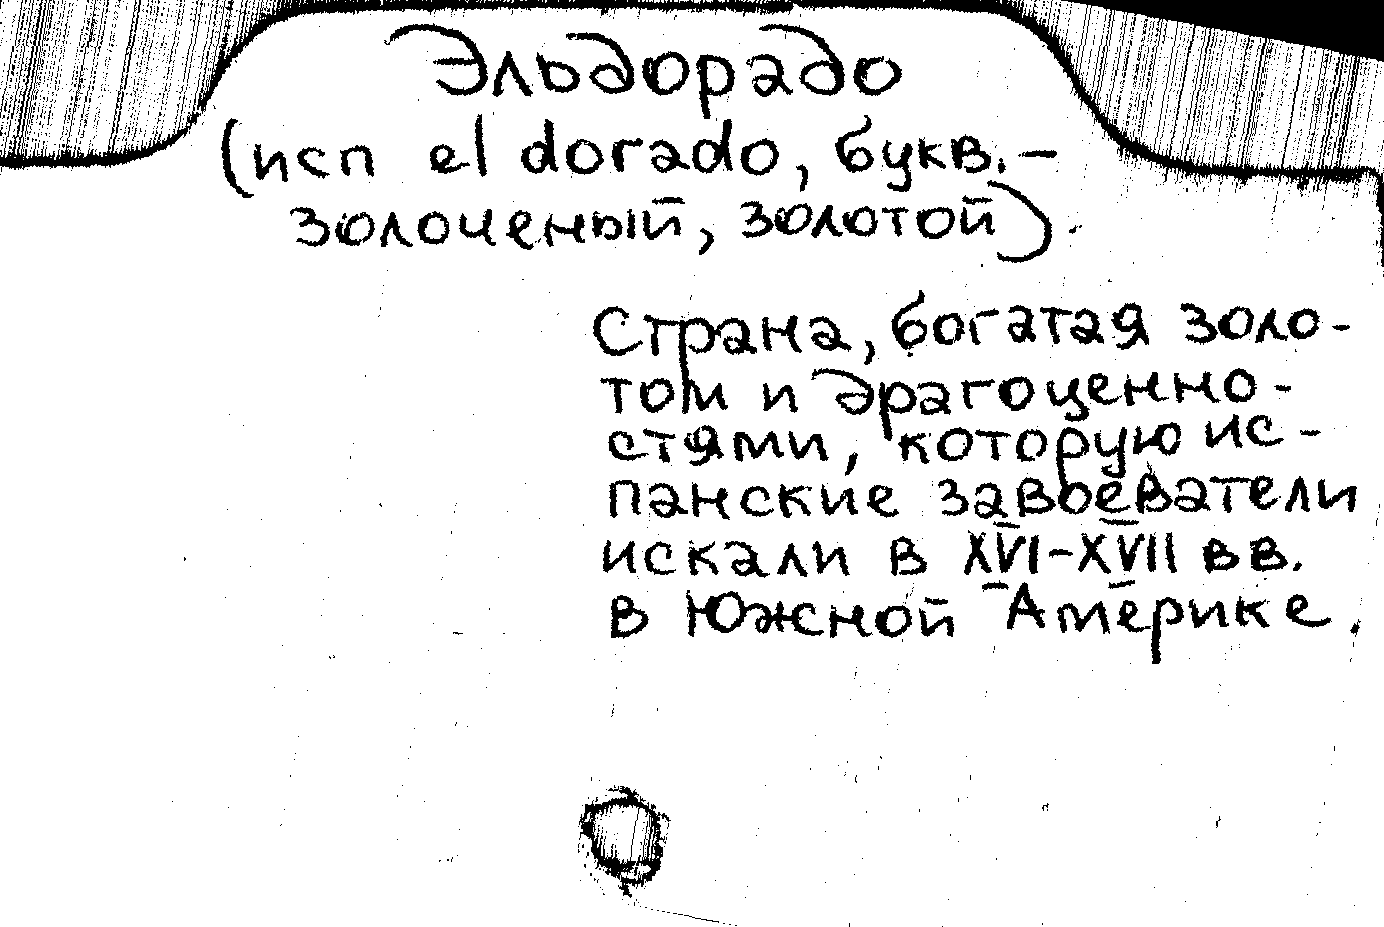 Эльдорадо
(исп el dorado, букв. –
золоченый, золотой).
Страна, богатая золо-
том и драгоценно-
стями, которую ис-
панские завоеватели
искали в XVI-XVII вв.
в Южной Америке.